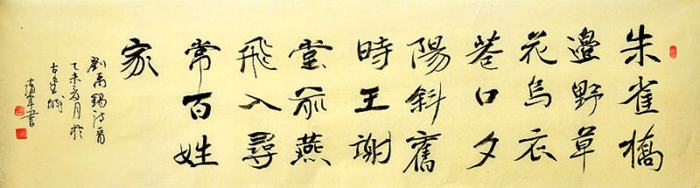 朱雀橋
邊野草
花烏衣
巷口夕
陽斜舊
時王謝
堂前燕
飛入尋
常百姓
家
劉禹錫詩
乙未月於
古城
書